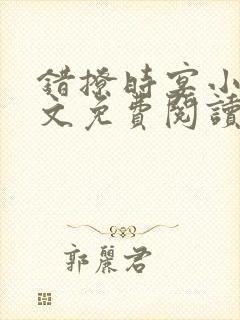 錯撩時宴小
文免費閱讀
郭麗君